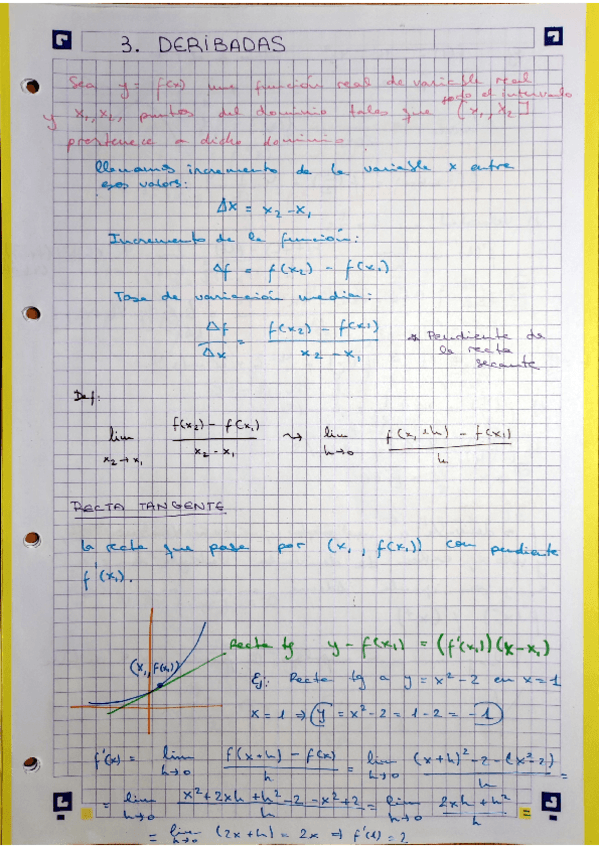 3. DERIBADAS
Sea y = f(x) una función real de variable real
y x₁, x₂, puntos del dominio tales que todo el intervalo [x₁, x₂]
pertenece a dicho dominio.
Llamamos incremento de la variable x entre
esos valors:
Δx = x₂ - x₁
Incremento de la función:
Δf = f(x₂) - f(x₁)
Tasa de variación media:
Δf/Δx = (f(x₂) - f(x₁))/(x₂ - x₁) * Pendiente de
la recta
secante
Def:
lim x₂→x₁ (f(x₂) - f(x₁))/(x₂ - x₁) ⇝ lim h→0 (f(x₁+h) - f(x₁))/h
RECTA TANGENTE
La recta que pasa por (x₁, f(x₁)) con pendiente
f'(x₁).
Recta tg y - f(x₁) = (f'(x₁))(x - x₁)
(x₁, f(x₁))
Ej: Recta tg a y = x² - 2 en x = 1
x = 1 ⇒ y = x² - 2 = 1 - 2 = -1
f'(x) = lim h→0 (f(x+h) - f(x))/h = lim h→0 ((x+h)² - 2 - (x² - 2))/h =
= lim h→0 (x² + 2xh + h² - 2 - x² + 2)/h = lim h→0 (2xh + h²)/h =
= lim h→0 (2x + h) = 2x ⇒ f'(1) = 2